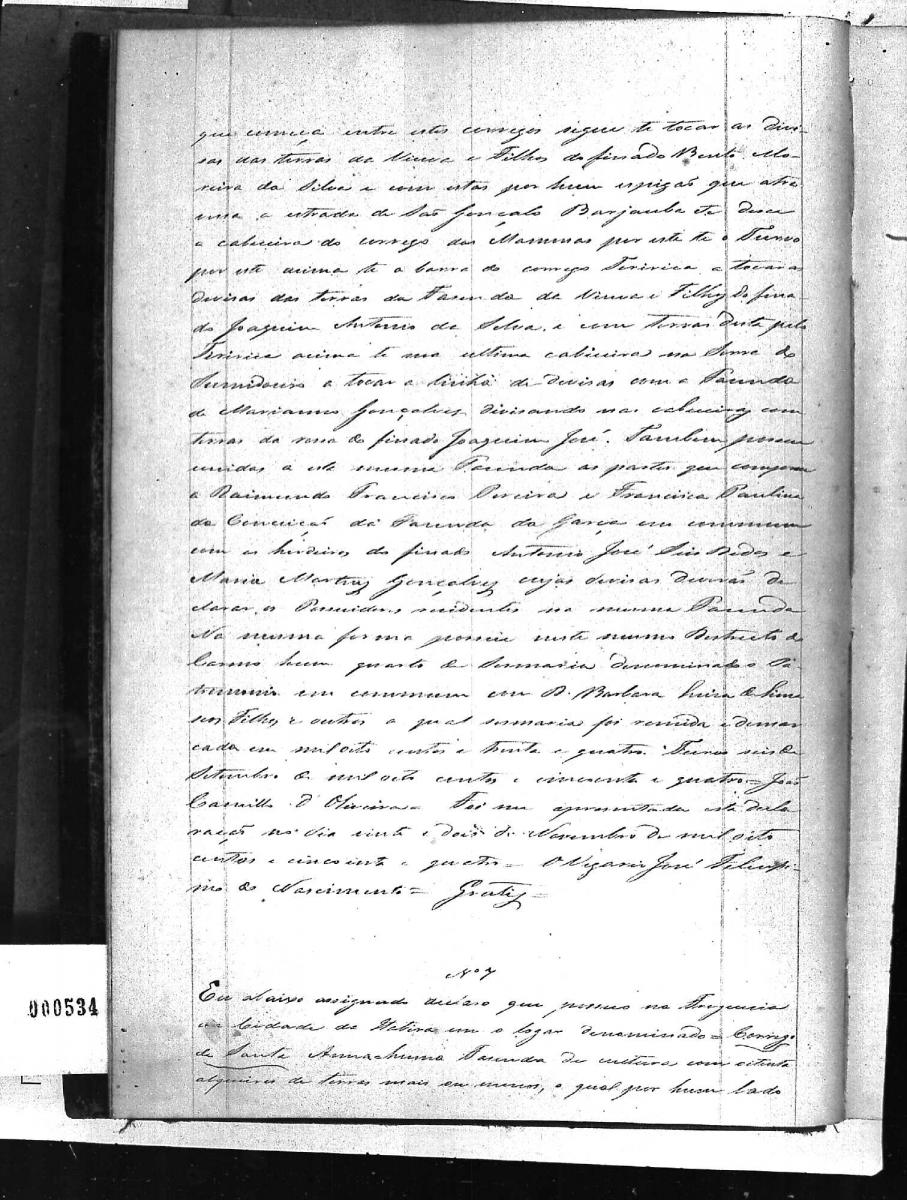 que comeca entre estes corregos segue te tocar as divi-
sas das terras da Viuva e Filhos do finado Bento Mo-
reira da Silva e com estas por hum espigão que atra
vessa a estrada de São Gonçalo te desce
a cabiceira do corrego das por este te o Turvo
por este acima te a barra do corrego Teririca a tocar as
devisas das terras da Fasenda da Viuva e Filhos do fina
do Joaquim Antonio da Silva, e com terras desta pelo
Teririca acima te sua ultima cabiceira na Serra do
Sumidouro a tocar a linha de devisas com a Facenda
de Marianno Gonçalves divisando nas cabiceiras com
terras da do finado Joaquim José. Tambem possuo
unidas a esta mesma Facenda as partes que comprei
a Raimundo Francisco Pereira e Francisca Paulina
da Conceicão da Facenda da Garça em commum
com os herdeiros do finado Antonio José e
Maria Martins Gonçalves cujas devisas deverão de
clarar os Possuidores residentes na mesma Facenda
Na mesma forma possuo neste mesmo Destricto do
Carmo hum quarto de Sesmaria denominado o Pa-
trimonio em commum com D. Barbara
seus Filhos e outros a qual sesmaria foi medida e demar
cada em mil oito centos e trinta e quatro. Turvo seis de
Setembro de mil oito centos e cincoenta e quatro = João
Camillo d'Oliveira = Foi me apresentada esta decla
ração no dia vinte e dois de Novembro de mil oito
centos e cincoenta e quatro = O Vigario José
do Nascimento = Gratis =
Nº 7
Eu abaixo assignado declaro que possuo na Freguesia
da Cidade da Itabira em o logar denominado = Corrego
de Santa Anna = huma Facenda de cultura com oitenta
alqueires de terras mais ou menos, o qual por hum lado
000534